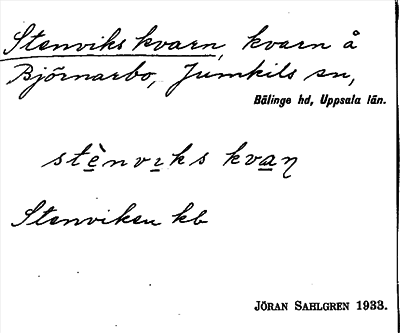 Stenviks kvarn, kvarn å
Björnarbo, Jumkils sn,
Bälinge hd, Uppsala län.
stè̱nvı̱ks kva̱ɳ
Stenviken kb
JÖRAN SAHLGREN 1933.